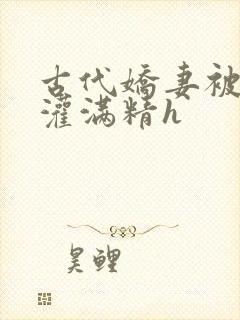 古代嬌妻被
灌满精h
昊鲤